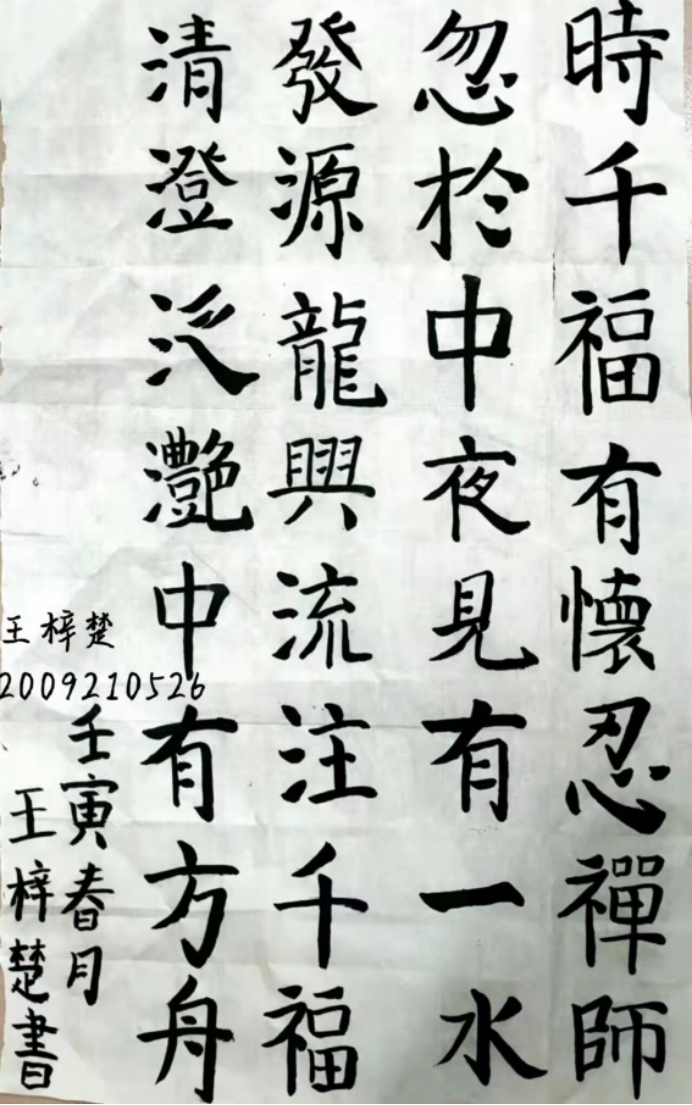 時千福有懷忍禪師
忽於中夜見有一水
發源龍興流注千福
清澄泛灧中有方舟
壬寅春月
王梓楚書
王梓楚
2009210526